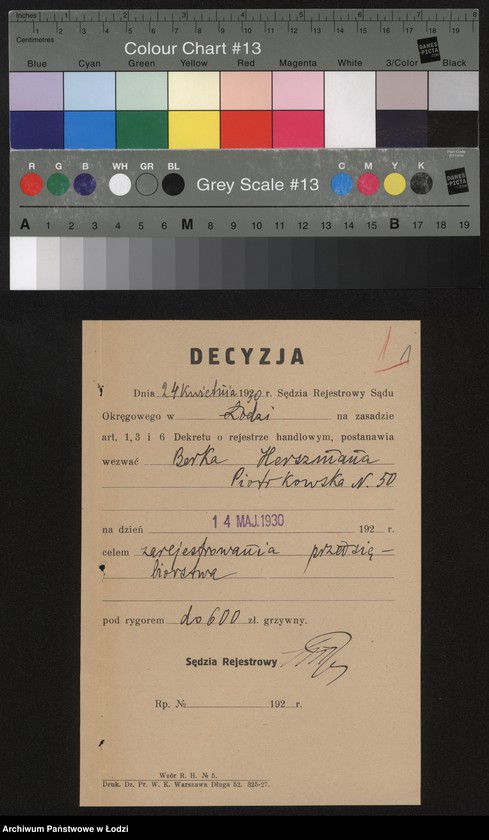 Inches 1 2 3 4 5 6 7 8
Centimetres 1 2 3 4 5 6 7 8 9 10 11 12 13 14 15 16 17 18 19
Colour Chart #13
DANES-PICTA
Blue Cyan Green Yellow Red Magenta White 3/Color Black
R G B WH GR BL Grey Scale #13 C M Y K
DANES-PICTA
A 1 2 3 4 5 6 M 8 9 10 11 12 13 14 15 B 17 18 19
1
DECYZJA
Dnia 24 kwietnia 1930 r. Sędzia Rejestrowy Sądu
Okręgowego w Łodzi na zasadzie
art. 1, 3 i 6 Dekretu o rejestrze handlowym, postanawia
wezwać Berka Herszmana
Piotrkowska N. 50
na dzień 14 MAJ. 1930 192 r.
celem zarejestrowania przedsię-
biorstwa
pod rygorem do 600 zł. grzywny.
Sędzia Rejestrowy
Rp. № 192 r.
Wzór R. H. № 5.
Druk. Dz. Pr. W. K. Warszawa Długa 52. 325-27.
Archiwum Państwowe w Łodzi